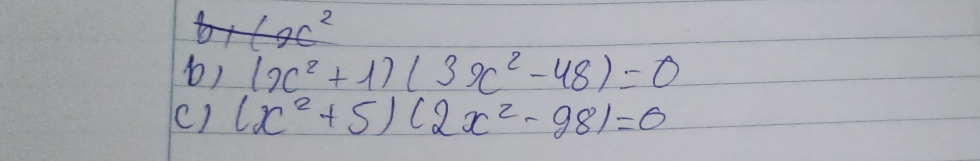 b) (x²
b) (x² + 1) (3x² - 48) = 0
c) (x² + 5) (2x² - 98) = 0